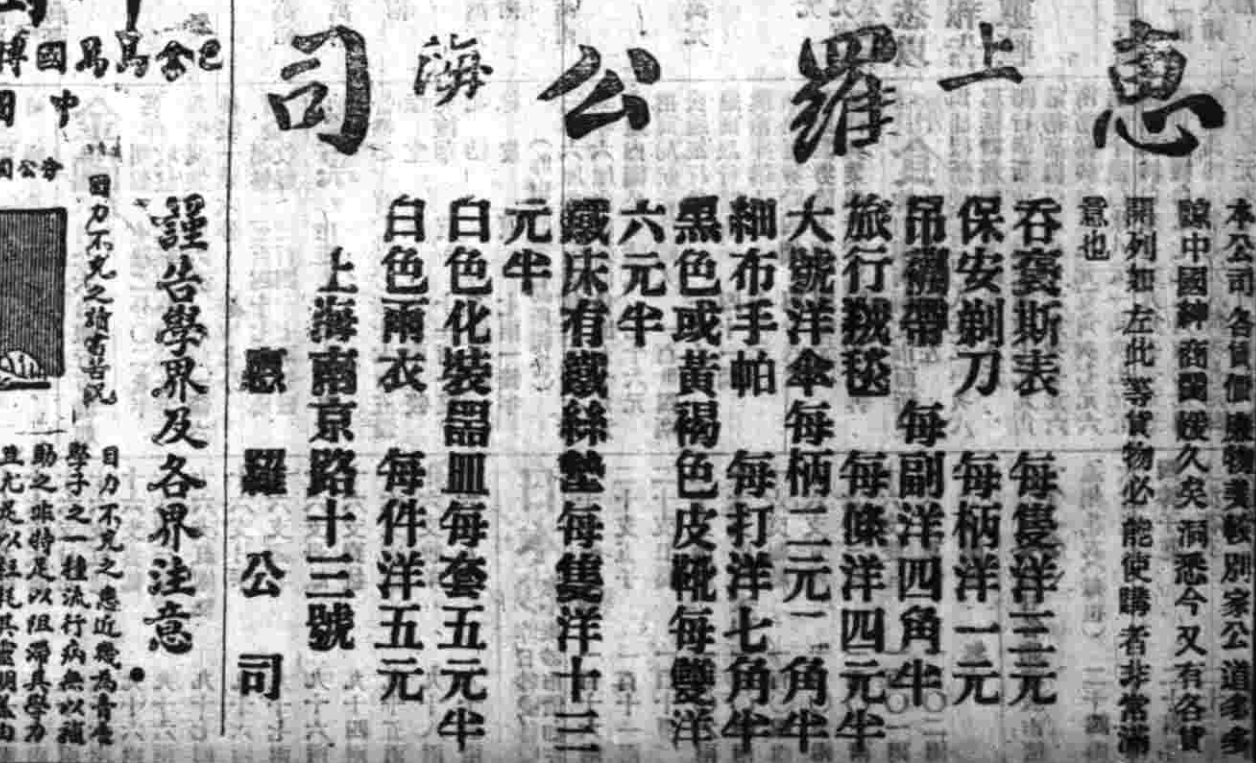 惠羅公司
上海
本公司各貨價廉物美較別家公道多多
諒中國紳商閨媛久矣洞悉今又有各貨
開列如左此等貨物必能使購者非常滿
意也
呑褒斯表 每隻洋三元
保安剃刀 每柄洋一元
吊襪帶 每副洋四角半
旅行羢毯 每條洋四元半
大號洋傘每柄二元二角半
細布手帕 每打洋七角半
黑色或黃褐色皮靴每雙洋
六元半
鐵床有鐵絲墊每隻洋十三
元半
白色化裝器皿每套五元半
白色雨衣 每件洋五元
上海南京路十三號
惠羅公司
謹告學界及各界注意
國
中國
目力不充之讀書苦況
目力不充之患近幾為青年
學子之一種流行病無以補
助之非特足以阻滯其學力